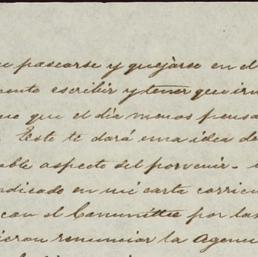 pasearse y quejarse en el
escribir y tener que ir
que el dia menos pensa
Esto te dará una idea de
able aspecto del porvenir.
ndicado en mi carta corrien
can el Committee por las
ieron renunciar la Agenci